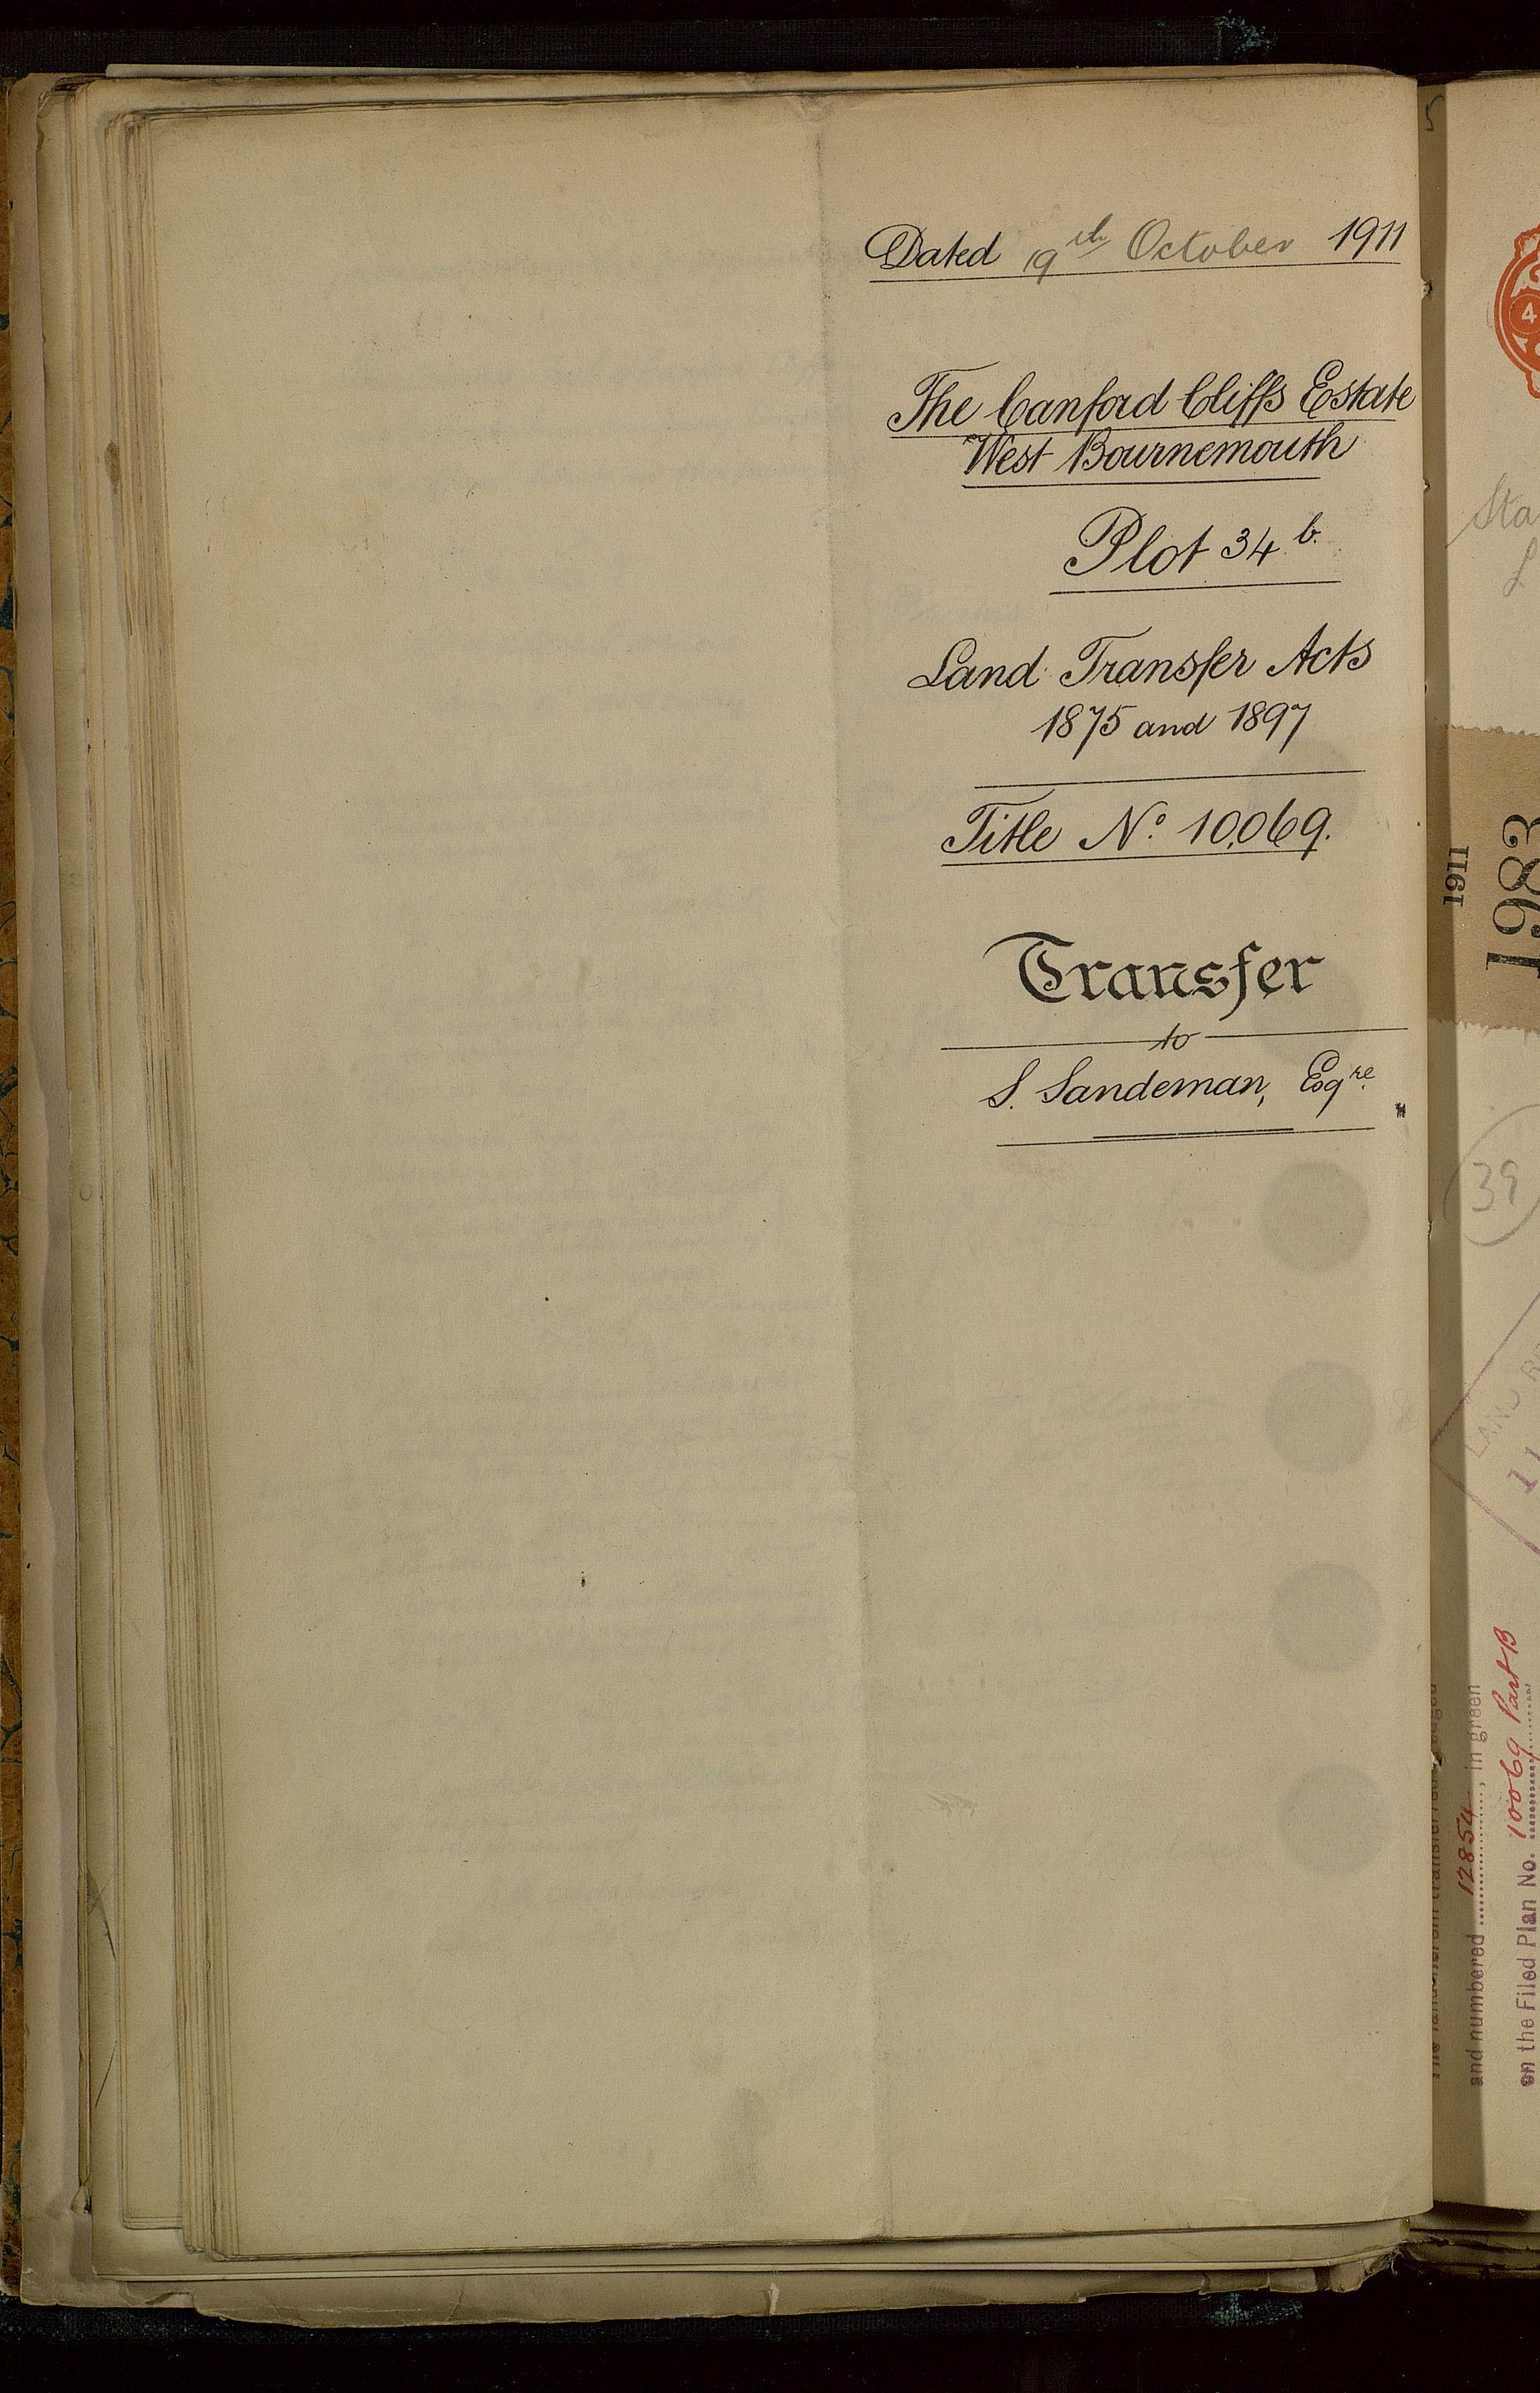 Dated 19th October 1911
The Canford Cliffs Estate
West Bournemouth
Plot 34 b.
Land Transfer Acts
1875 and 1897
Title No. 10,069.
Transfer
to
S. Sandeman, Esqre.
5
4
Sta
1911
1983
39
LAND
11
and numbered 12854, in green
on the Filed Plan No. 10069 Part B